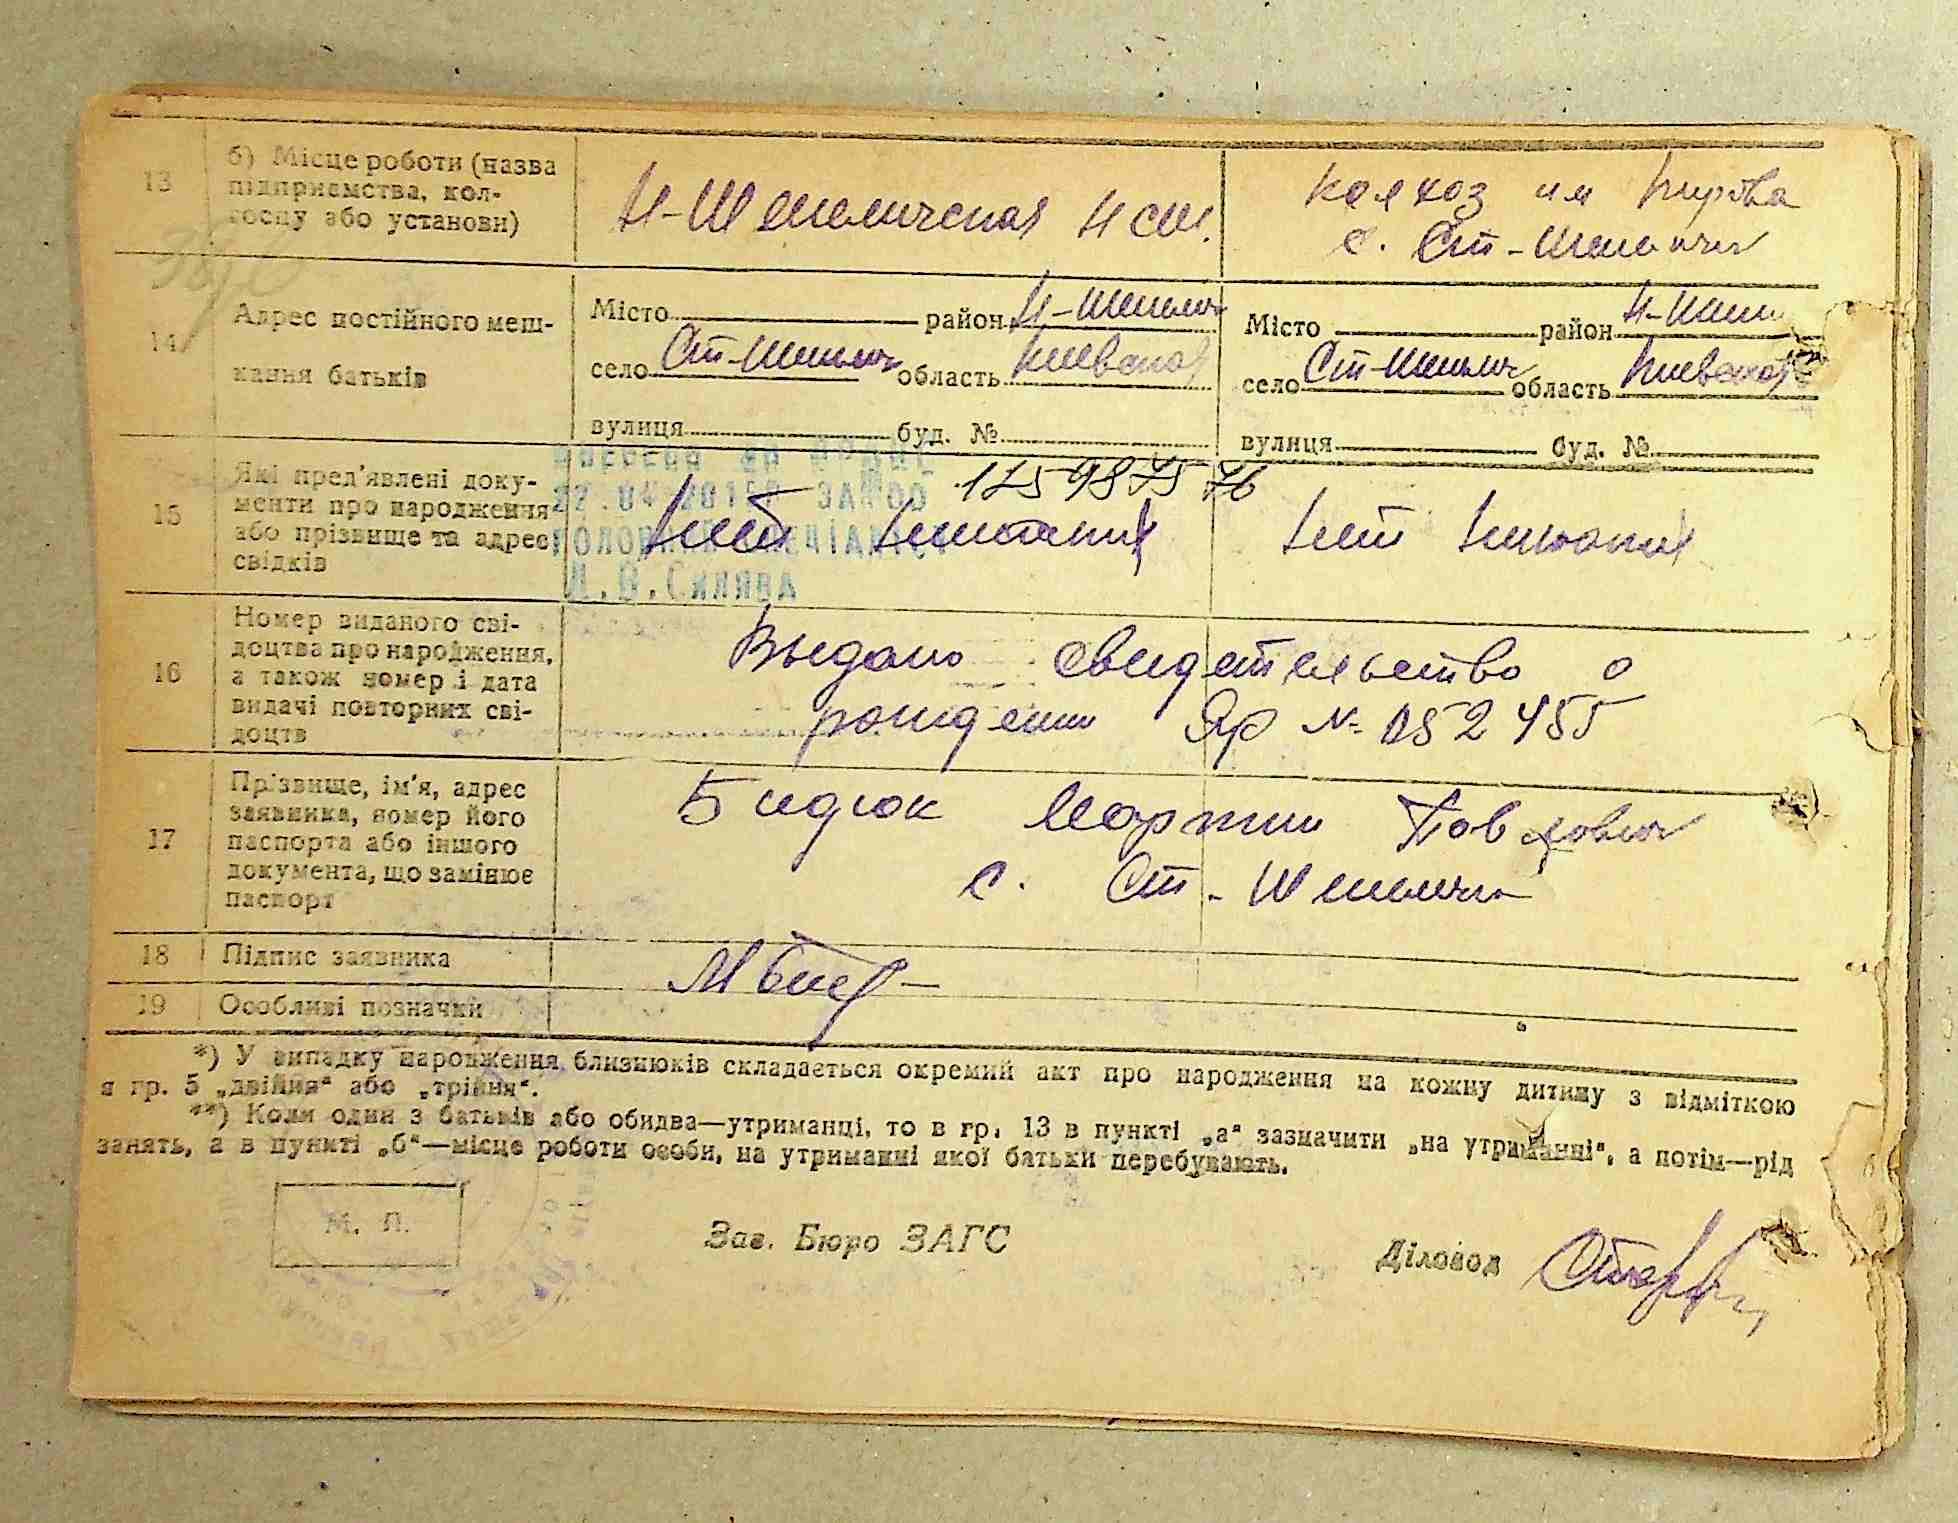 13
б) Місце роботи (назва
підприємства, кол-
госпу або установи)
Н-Шепеличская НСШ.
Колхоз им Кирова
с. Ст-Шепеличи
14
Адрес постійного меш-
кання батьків
Місто район Н-Шепелич
село Ст-Шепелич область Киевская
вулиця буд. №
Місто район Н-Шепе
село Ст-Шепелич область Киевская
вулиця буд. №
15
Які пред'явлені доку-
менти про народження
або прізвище та адрес
свідків
22.04.2015
В.Синява
1759875 76
16
Номер виданого сві-
доцтва про народження,
а також номер і дата
видачі повторних сві-
доцтв
Выдано свидетельство о
рождении ЯР № 052455
17
Прізвище, ім'я, адрес
заявника, номер його
паспорта або іншого
документа, що замінює
паспорт
Бидюк Мартин Павлович
с. Ст-Шепеличи
18
Підпис заявника
19
Особливі позначки
*) У випадку народження близнюків складається окремий акт про народження на кожну дитину з відміткою
в гр. 5 „двійня“ або „трійня“.
**) Коли один з батьків або обидва—утриманці, то в гр. 13 в пункті „а“ зазначити „на утриманні“, а потім—рід
занять, а в пункті „б“—місце роботи особи, на утриманні якої батьки перебувають.
М. П.
Зав. Бюро ЗАГС
Діловод